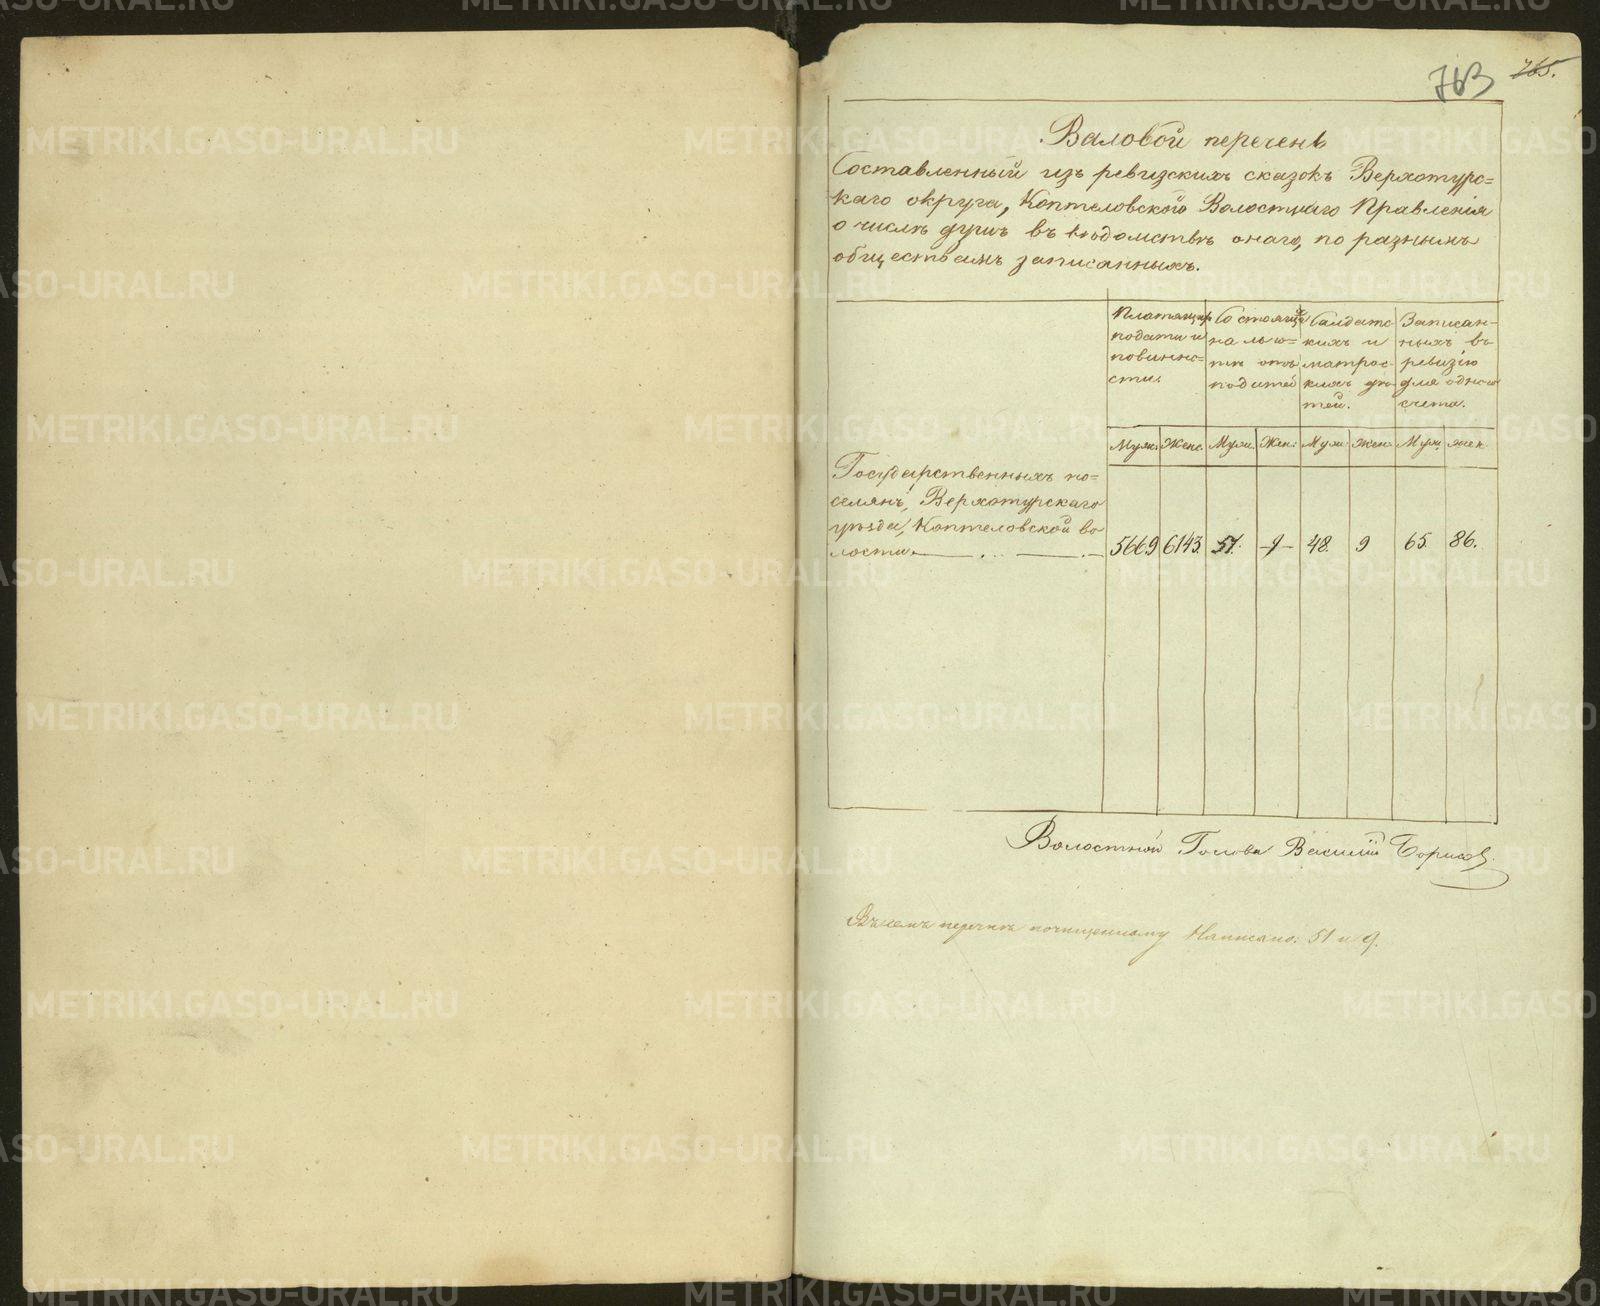 763 765.
Валовой перечень
Составленный изъ ревизскихъ сказокъ Верхотурс=
каго округа, Коптеловскаго Волостнаго Правленія
о числѣ душъ въ вѣдомствѣ онаго, по разнымъ
обществамъ записанныхъ.
Платящихъ
подати и
повинно-
сти.
Состоящихъ
на льго=
тѣ отъ
податей
Салдатс-
кихъ и
матрос-
кихъ дѣ-
тей.
Записан-
ныхъ въ
ревизію
для однаго
счета.
Муж. Женс. Муж. Жен: Муж: Жен. Муж. Жен.
Государственныхъ по=
селянъ, Верхотурскаго
уѣзда, Коптеловской во
лости. 5669 6143. 51. 9 48. 9 65. 86.
Волостной Голова Василій
перечнѣ почищенному Написано: 51 и 9.
METRIKI.GASO-URAL.RU